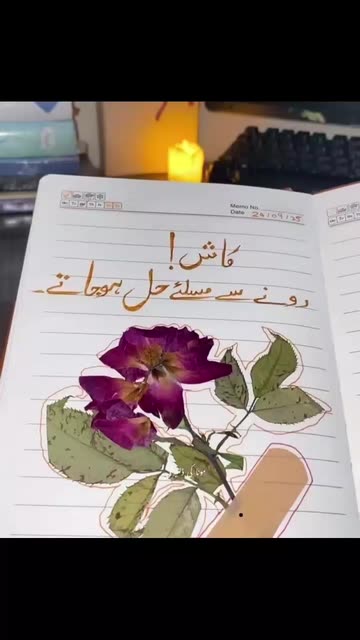 Memo No.
Date 26/09/25
کاش !
رونے سے مسلئے حل ہو جاتے۔